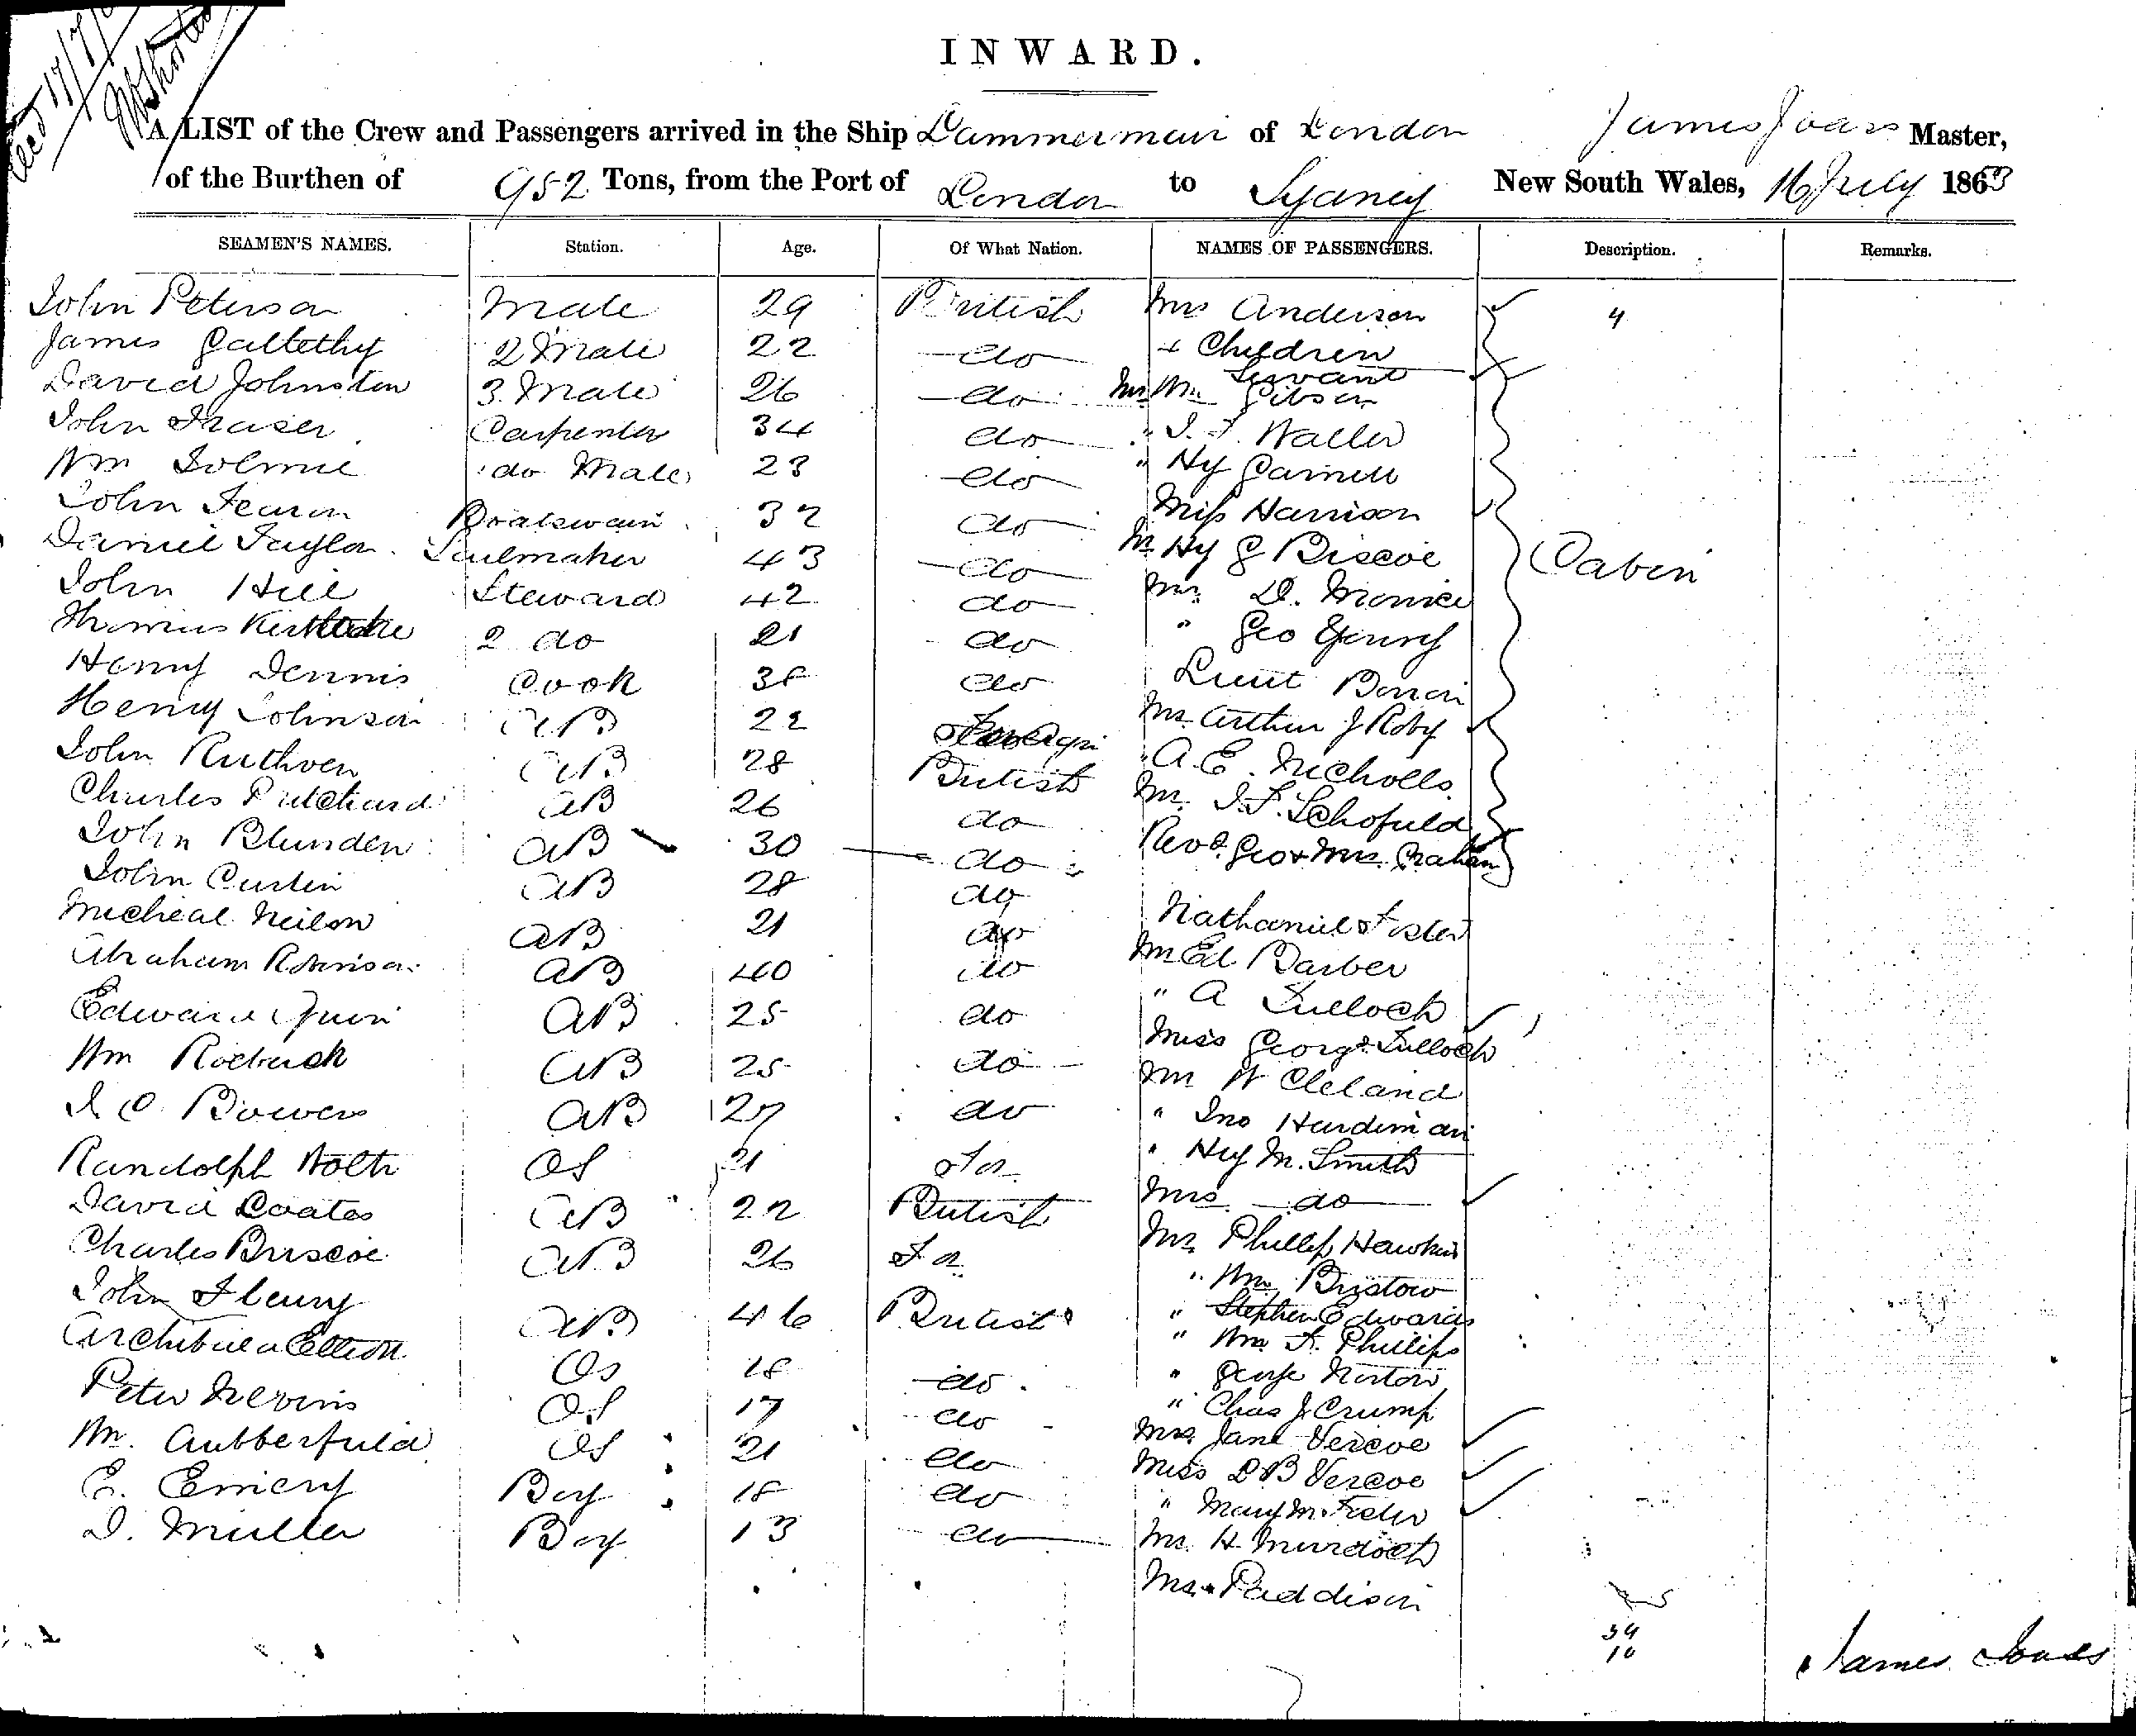 INWARD.
A LIST of the Crew and Passengers arrived in the Ship Lammermuir of London James Master,
of the Burthen of 952 Tons, from the Port of London to Sydney New South Wales, 16 July 1863
SEAMEN'S NAMES. Station. Age. Of What Nation. NAMES OF PASSENGERS. Description. Remarks.
John Peterson Mate 29 British Mrs Anderson 4
James Galtethy 2 Mate 22 do + Children
Servant
David Johnston 3. Mate 26 do Mr Wm Gibson
John Fraser Carpenter 34 do " J. F. Waller
Wm Tolmie do Mate 23 do " Hy Garnell
John Fearon Boatswain 32 do Miss Harrison
Daniel Taylor Sailmaker 43 do Mr Hy G Biscoe Cabin
John Hill Steward 42 do Mr D.
Thomas 2 do 21 do " Geo Young
Henry Dennis Cook 38 do Lieut
Henry Johnson AB 22 Foreign Mr Arthur J Roby
John Ruthven AB 28 British " A. E. Nicholls
Charles Pritchard AB 26 do Mr. J. F. Schofield
John Blunden AB 30 do Revd. Geo + Mrs. Graham
John Curtin AB 28 do
Micheal Neilson AB 21 do Nathaniel Foster
Abraham Robinson AB 40 do Mr Ed Barber
Edward Quin AB 25 do " A Tulloch
Wm Roebuck AB 25 do Miss Georga. Tulloch
J C. Bowers AB 27 do Mr W Cleland
" Jno Hardiman
Randolph Holtz OS 21 Fo " Hy M. Smith
David Coates AB 22 British Mrs do
Charles Briscoe AB 26 Fo Mr Phillip Hawkins
" Wm Bristow
John Fleury AB 46 British " Stephen Edwards
Archibald Elliott OS 18 do " Wm F. Phillips
" George Norton
Peter Nevins OS 17 do " Chas J. Crump
Wm. Cubberfield OS 21 do Mrs Jane Vercoe
E. Emery Boy 18 do Miss L B Vercoe
" Mary M.
J. Muller Boy 13 do Mr. H. Murdoch
Mr Paddison
34
10
James